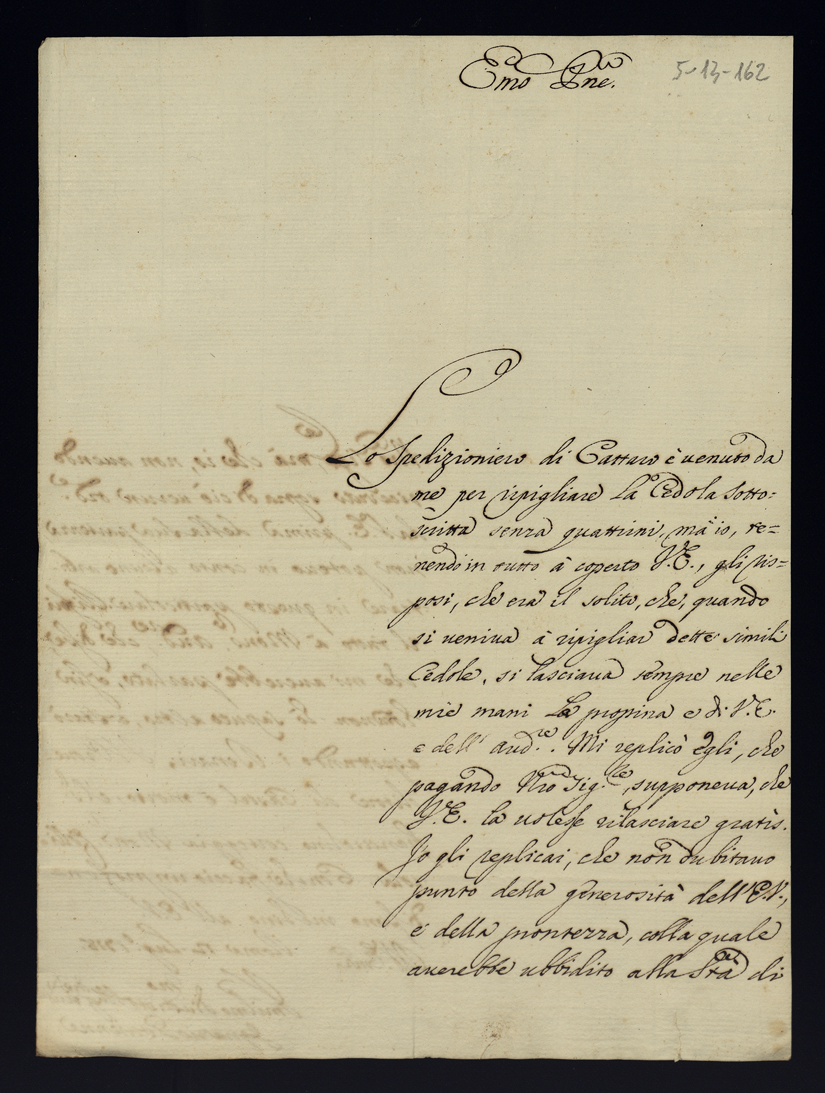 Emo Pne.
5-13-162
Lo Spedizioniero di Cattaro è venuto da
me per ripigliare la Cedola sotto=
scritta senza quattrini, mà io, te=
nendo in tutto à coperto V.E., gli ris=
posi, che era il solito, che, quando
si veniva à ripigliar dette simili
Cedole, si lasciava sempre nelle
mie mani la propina e di V.E.
e dell' Aud.re. Mi replicò egli, che
pagando Nro Sig.re, supponeva, che
V.E. la volesse rilasciare gratis.
Io gli replicai, che non dubitavo
punto della generosità dell' E.V.,
e della prontezza, colla quale
averebbe ubbidito alla Stà di